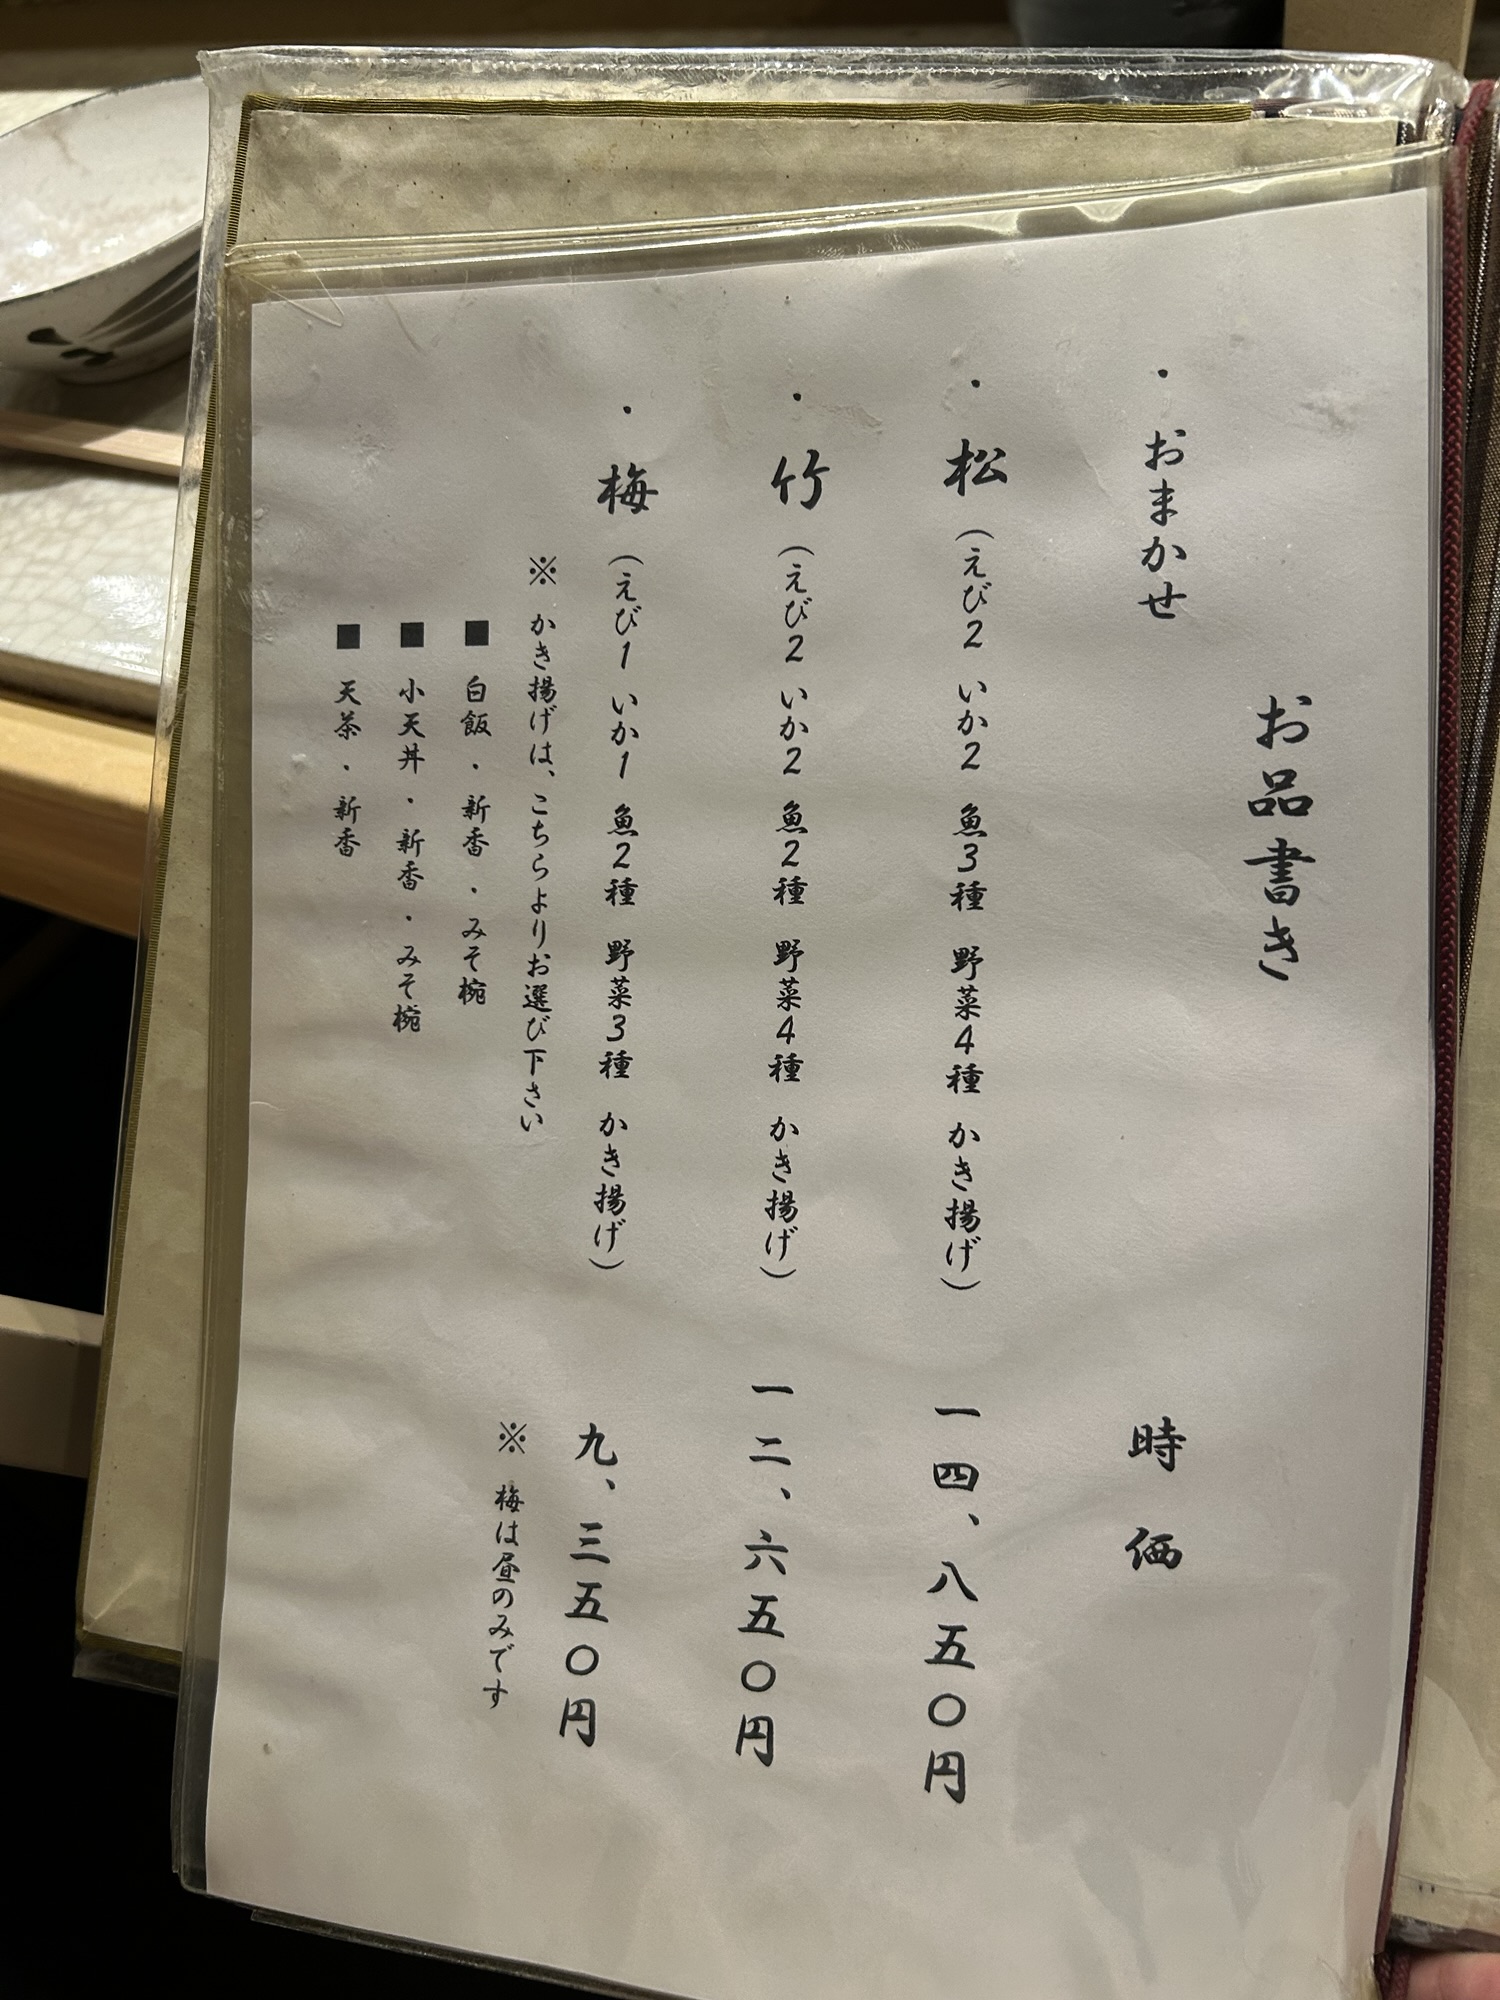 お品書き
・おまかせ 時価
・松(えび2 いか2 魚3種 野菜4種 かき揚げ) 一四、八五〇円
・竹(えび2 いか2 魚2種 野菜4種 かき揚げ) 一二、六五〇円
・梅(えび1 いか1 魚2種 野菜3種 かき揚げ) 九、三五〇円
※ かき揚げは、こちらよりお選び下さい
※ 梅は昼のみです
■ 白飯・新香・みそ椀
■ 小天丼・新香・みそ椀
■ 天茶・新香